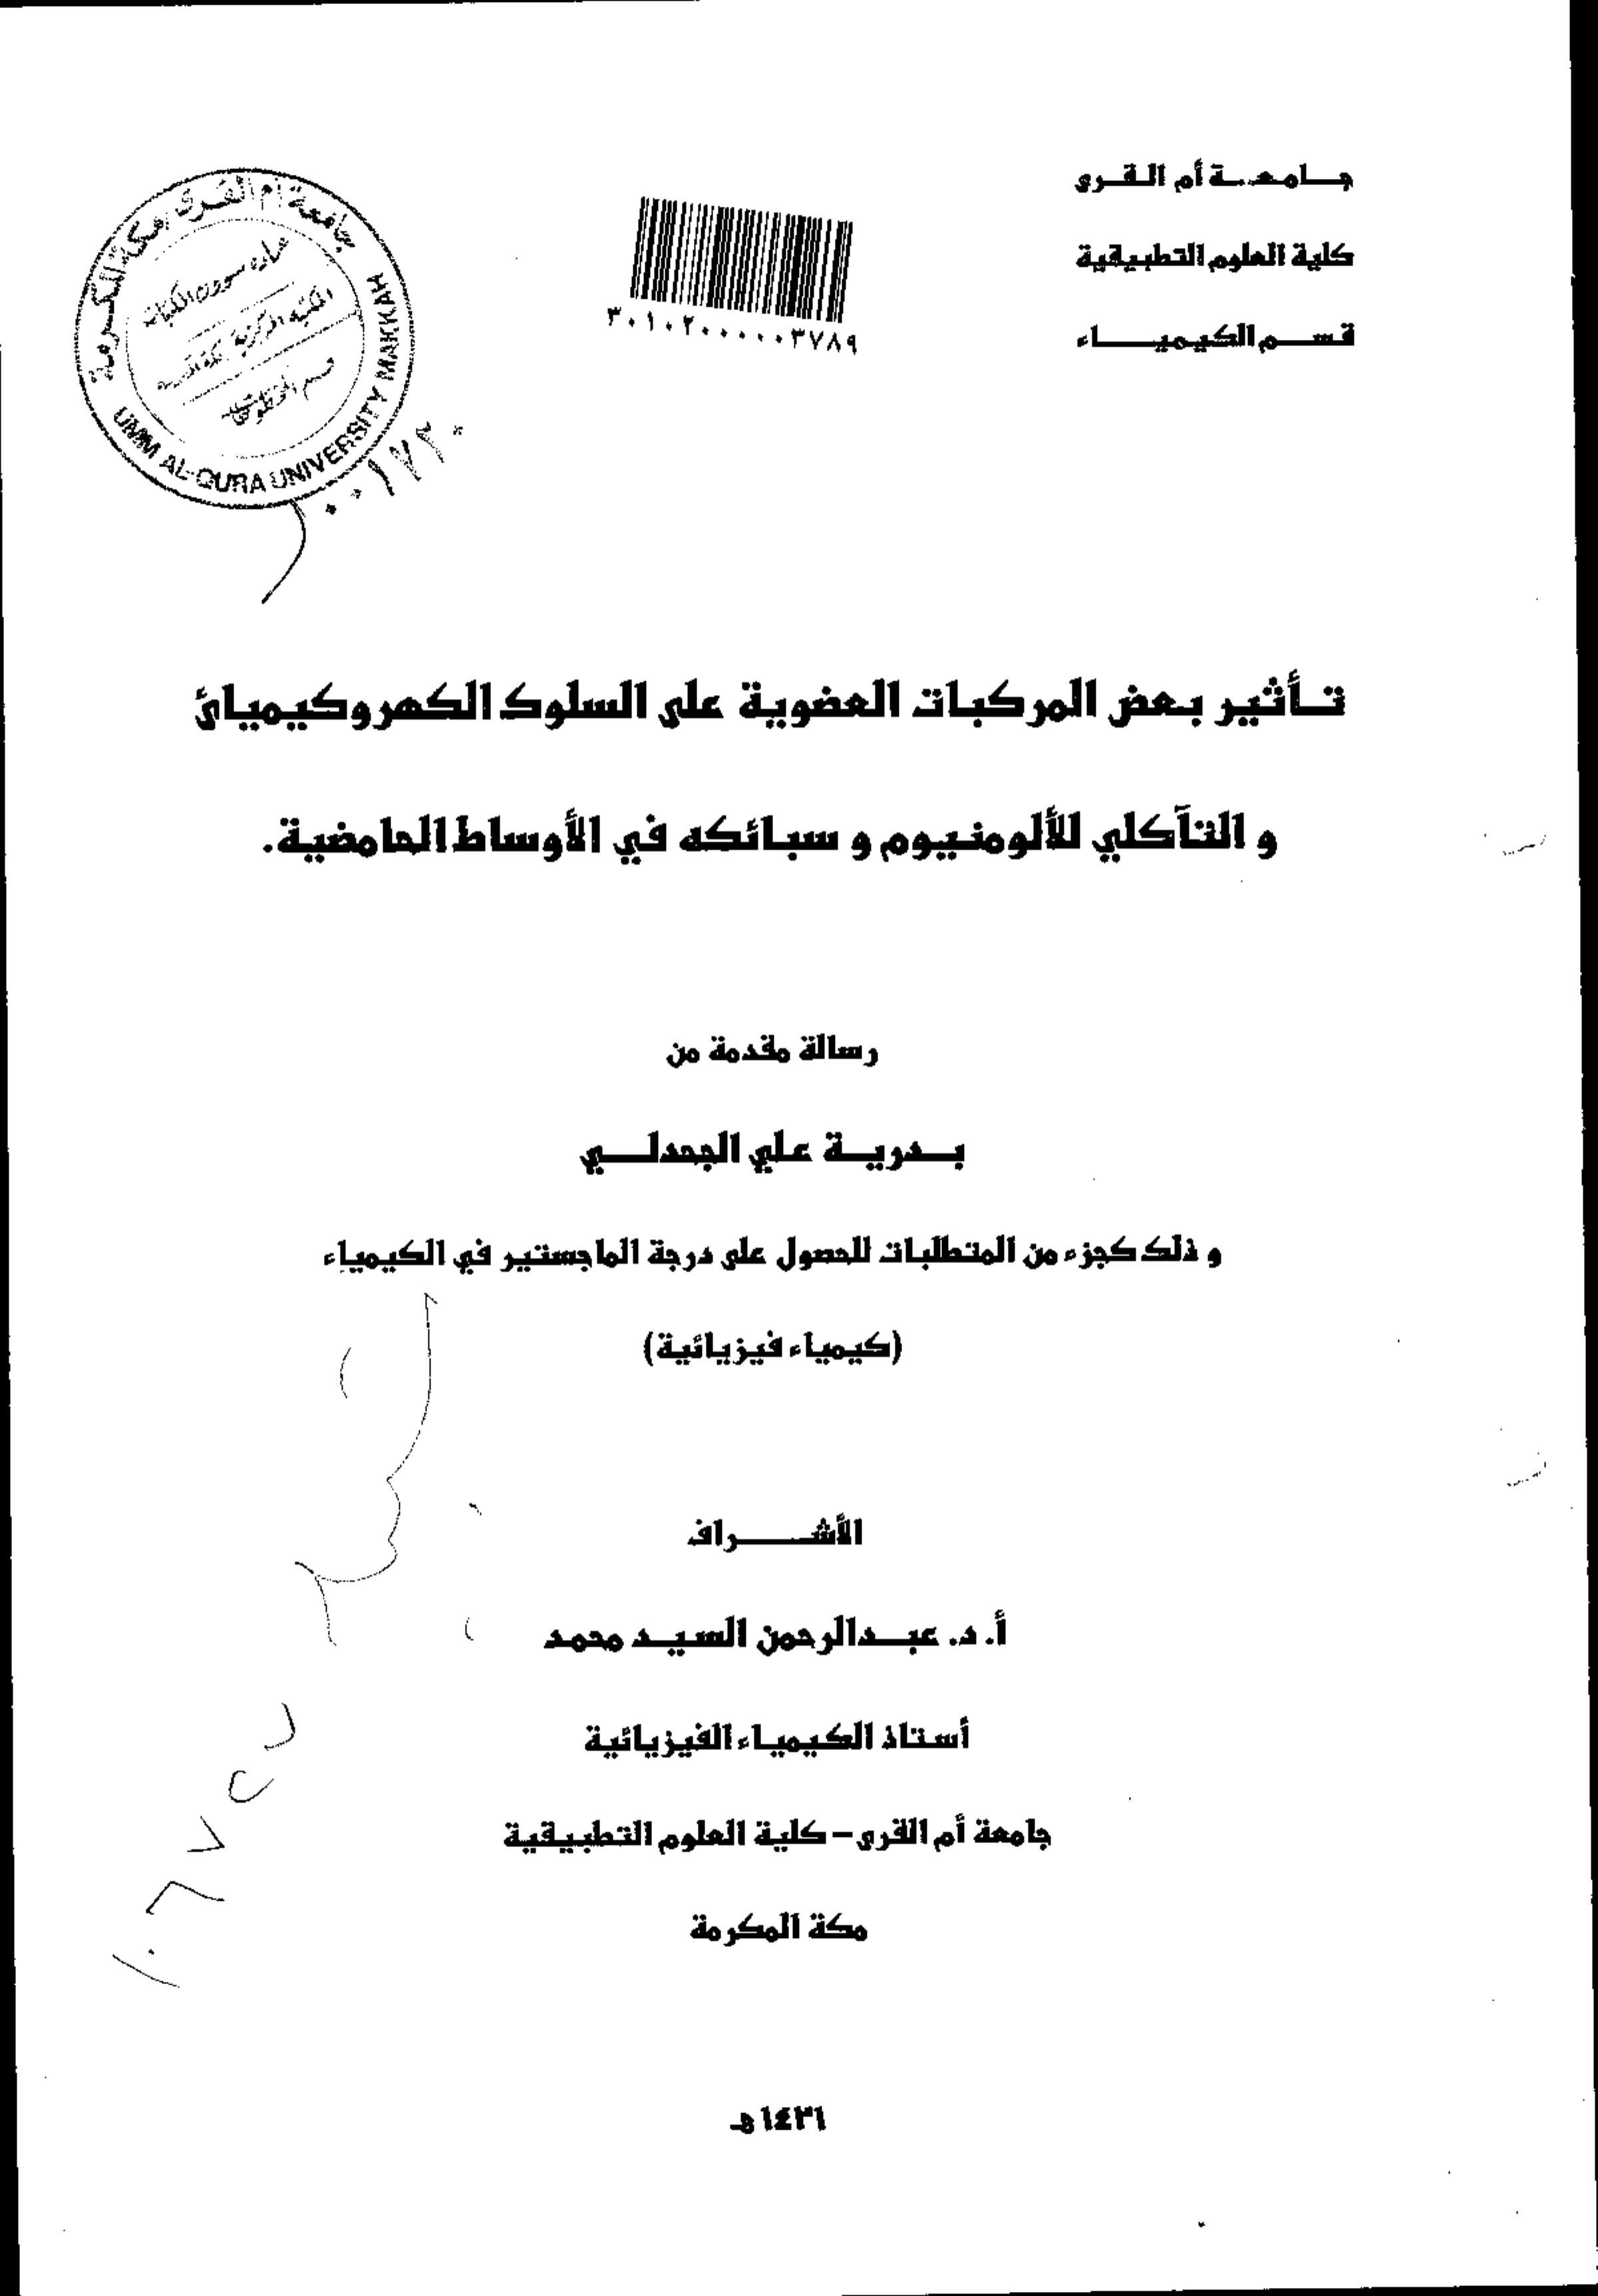 جامعة أم القرى
كلية العلوم التطبيقية
قسم الكيمياء
٣٠١٠٢٠٠٠٠٠٣٧٨٩
جامعة أم القرى مكة المكرمة
UMM AL-QURA UNIVERSITY MAKKAH
تأثير بعض المركبات العضوية على السلوك الكهروكيميائ
و التآكلي للألومنيوم و سبائكه في الأوساط الحامضية.
رسالة مقدمة من
بدرية علي الجحدلي
و ذلك كجزء من المتطلبات للحصول على درجة الماجستير في الكيمياء
(كيمياء فيزيائية)
الأشراف
أ. د. عبدالرحمن السيد محمد
أستاذ الكيمياء الفيزيائية
جامعة أم القرى – كلية العلوم التطبيقية
مكة المكرمة
١٤٢١هـ